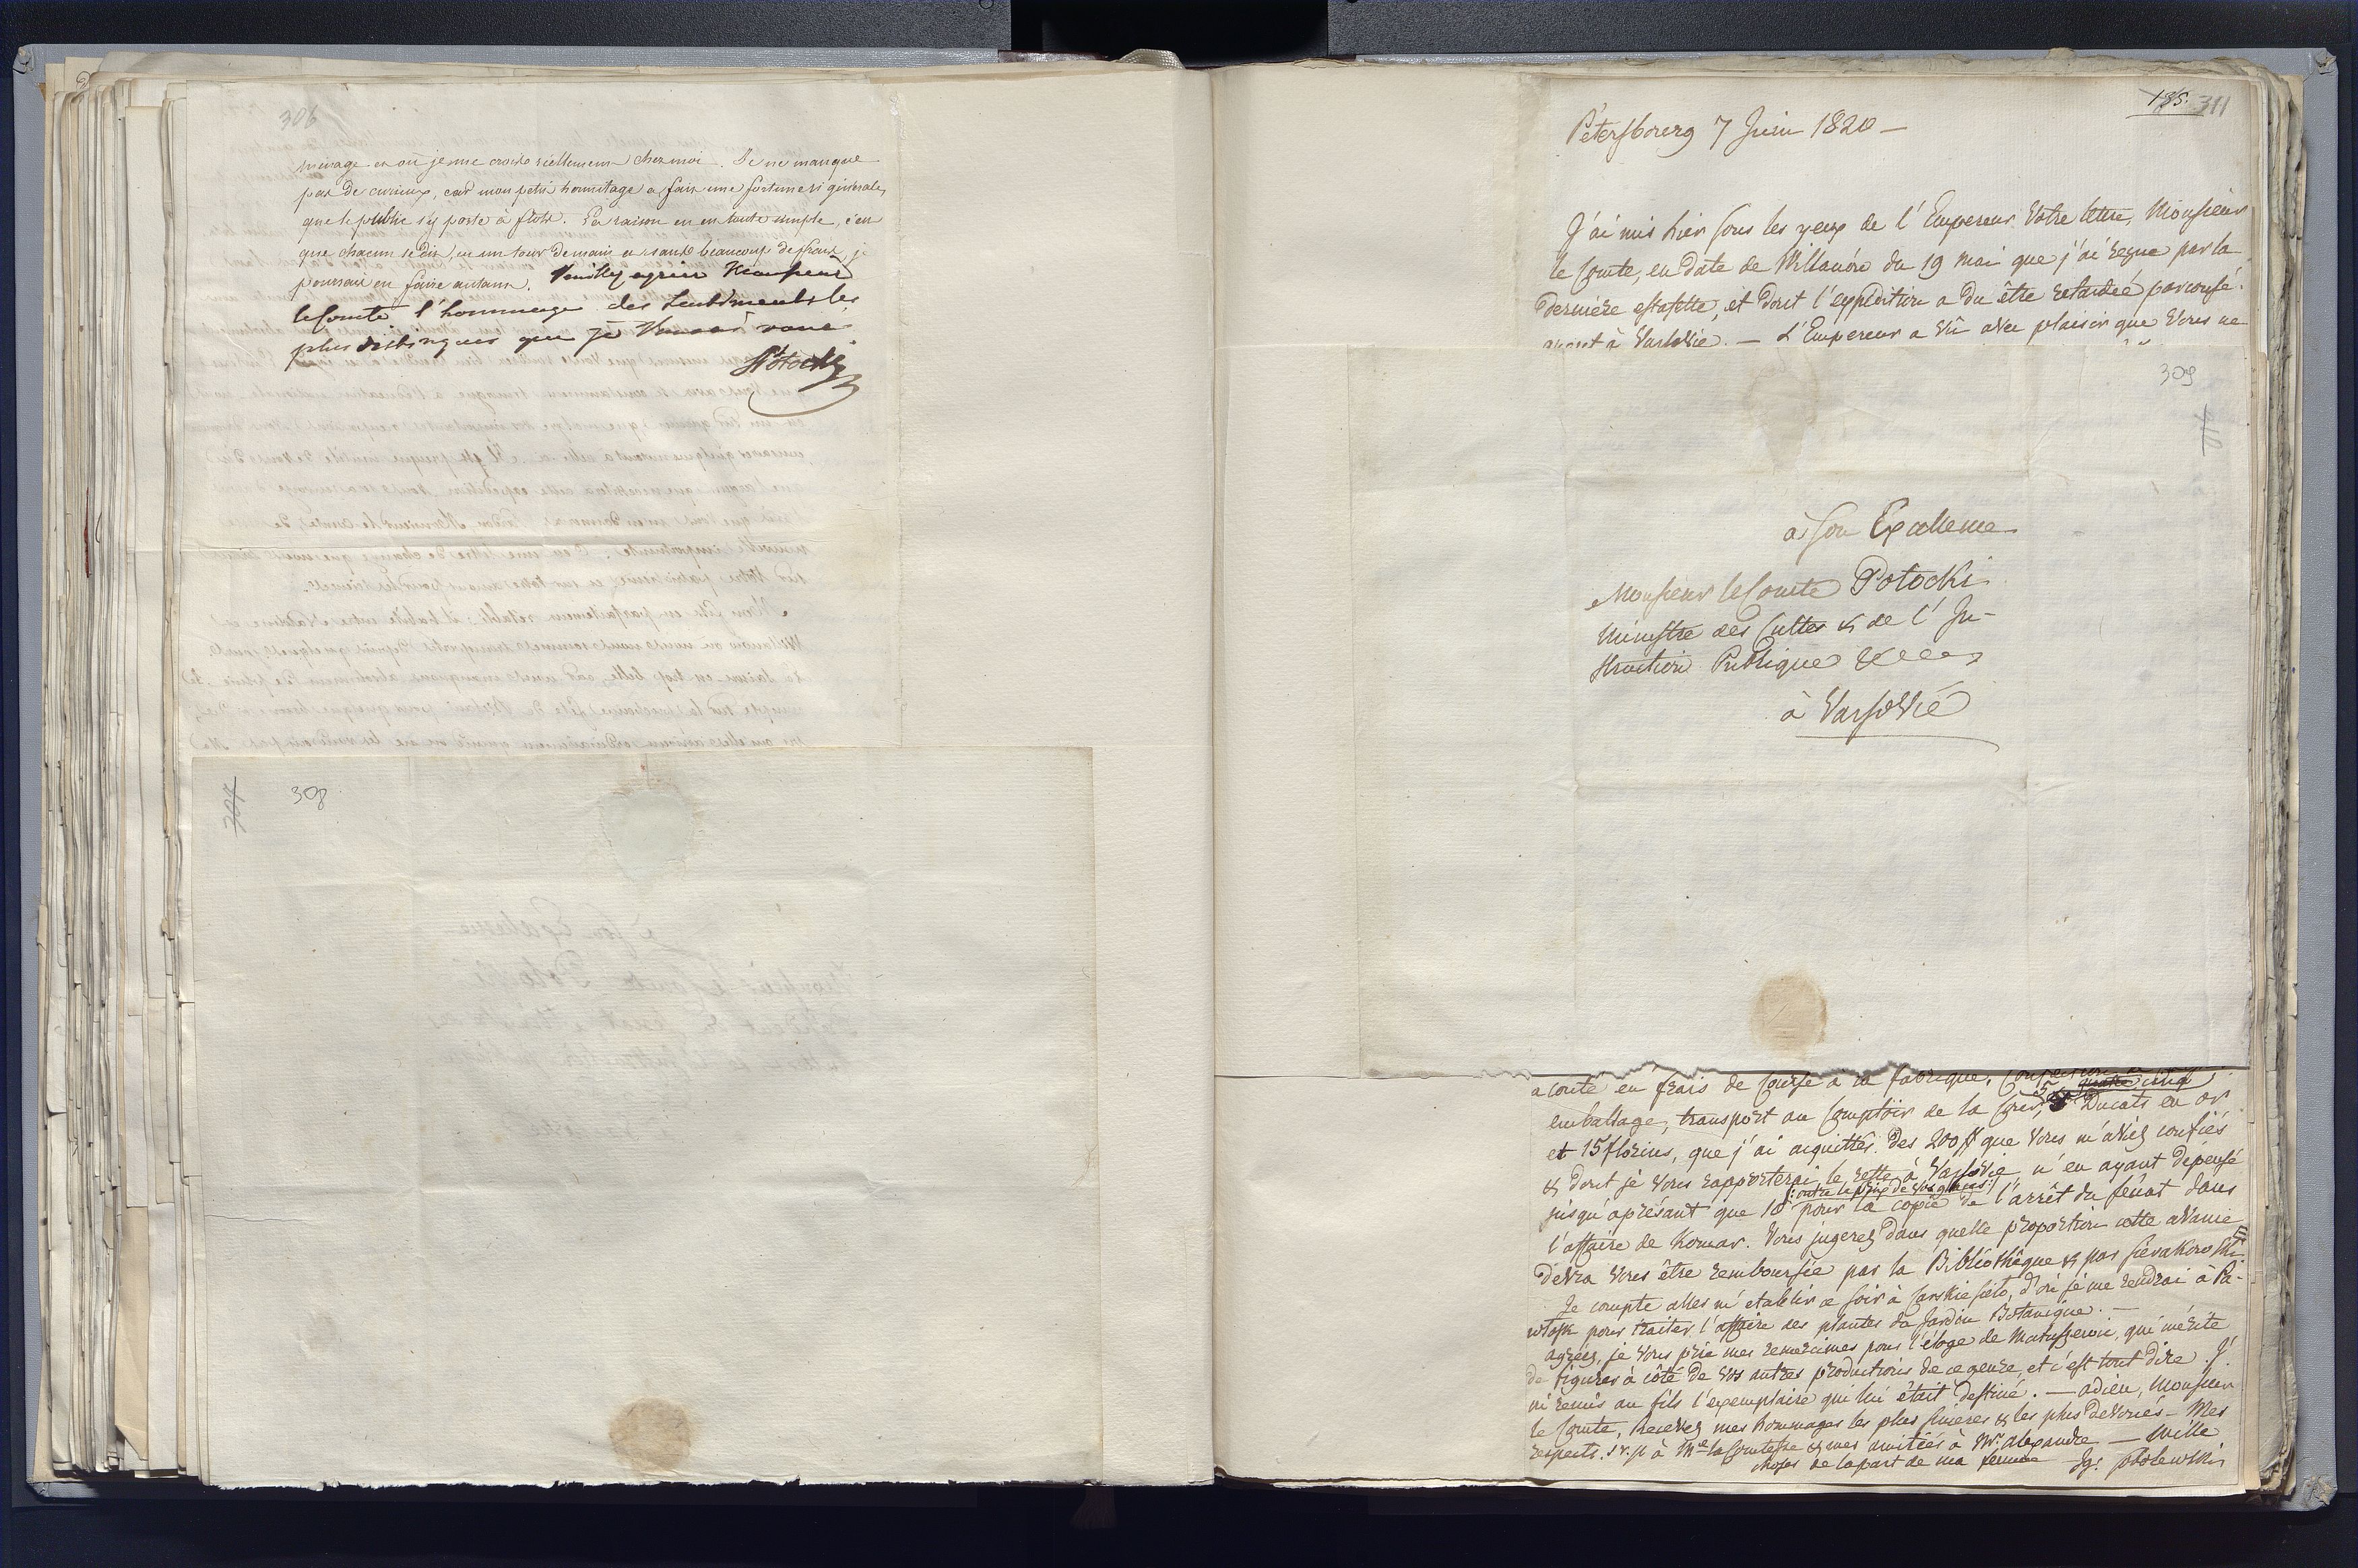 306
ménage et où je me croise réellement chez moi. Je ne manque
pas de curieux, car mon petit hermitage a fait une fortune si générale,
que le public s'y porte à flots. La raison en est toute simple, c'est
que chacun se dit, en un tour de main et sans beaucoup de fraix, je
pourrai en faire autant. Veuillez agréer Monsieur
le Comte l'hommage des sentiments les
plus distingués que je Vous ai voué
SPotocki
308
185. 311
Pétersbourg 7 Juin 1820 —
J'ai mis hier sous les yeux de l'Empereur Votre lettre, Monsieur
le Comte, en date de Willanów du 19 mai que j'ai reçue par la
dernière estafette, et dont l'expédition a du être retardée par consé-
quent à Varsovie. — L'Empereur a vû avec plaisir que Vous ne
309
à Son Excellence
Monsieur le Comte Potocki
Ministre des Cultes & de l'In-
struction Publique &
à Varsovie
a couté en frais de course à la fabrique,
emballage, transport au Comptoir de la Cour, 5 Ducats en or
et 15 florins, que j'ai acquittés des 200 # que Vous m'aviez confiés
& dont je Vous rapporterai le reste à Varsovie n'en ayant dépensé
:outre le prix de vos glaces:
jusqu'aprésant que 10 pour la copie de l'arrêt du Sénat dans
l'affaire de Komar. Vous jugerez dans quelle proportion cette avance
devra Vous être remboursée par la Bibliothêque & par Sierakowski
Je compte aller m'etablir ce soir à Carskie sieło, d'où je me rendrai à Pa-
wlosk pour traiter l'affaire des plantes du Jardin Botanique. —
agréez, je Vous prie mes remercimes pour l'éloge de Matuszewic, qui mérite
de figurer à côté de Vos autres productions de ce genre, et c'est tout dire. J'
ai remis au fils l'exemplaire qui lui était destiné. — adieu, Monsieur
le Comte, Recevez mes hommages les plus sincères & les plus devoués — Mes
respects s. v. p. à Mme la Comtesse & mes amitiés à Mr. Alexandre — Mille
choses de la part de ma femme Ig: Sobolewski